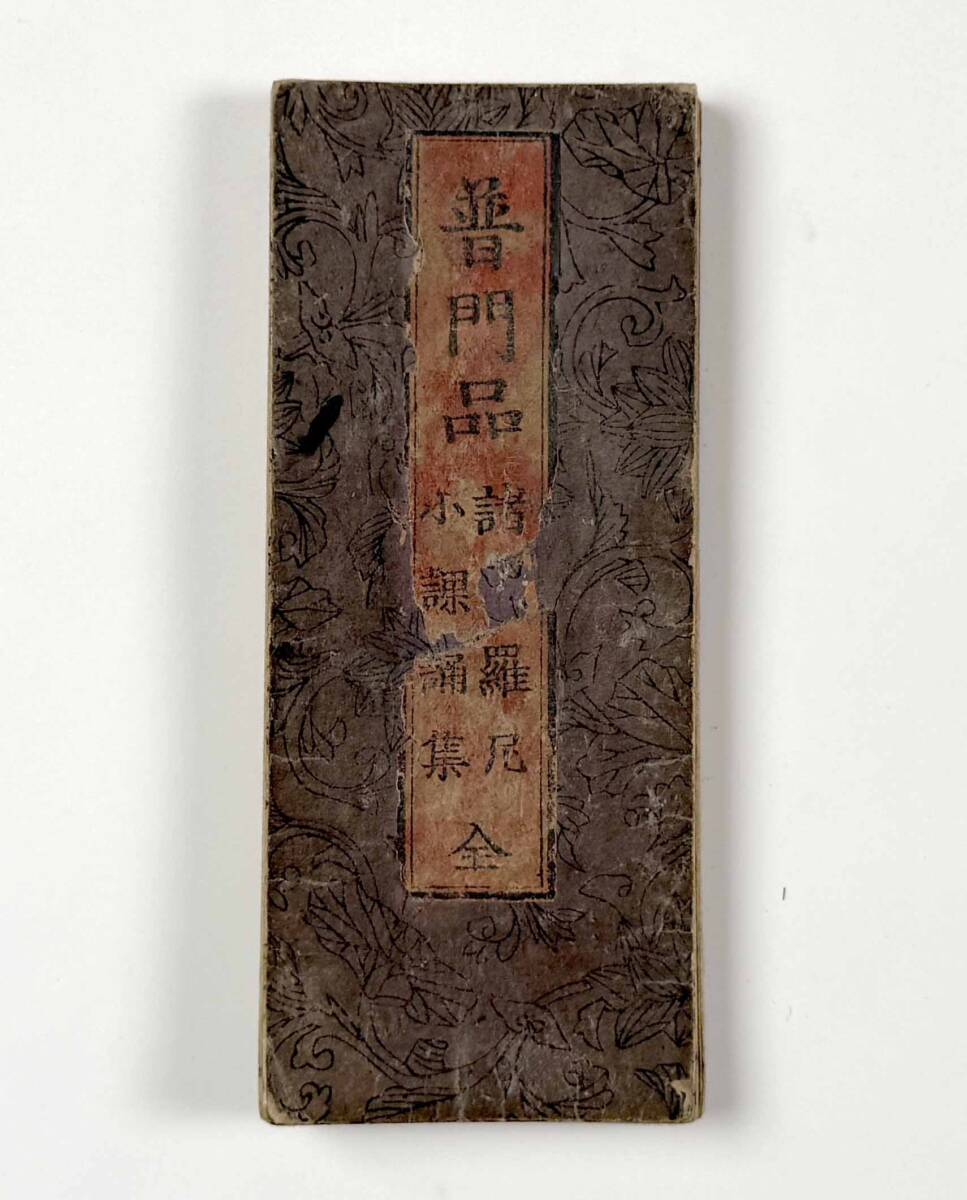 普門品
諸羅尼
小課誦集
全